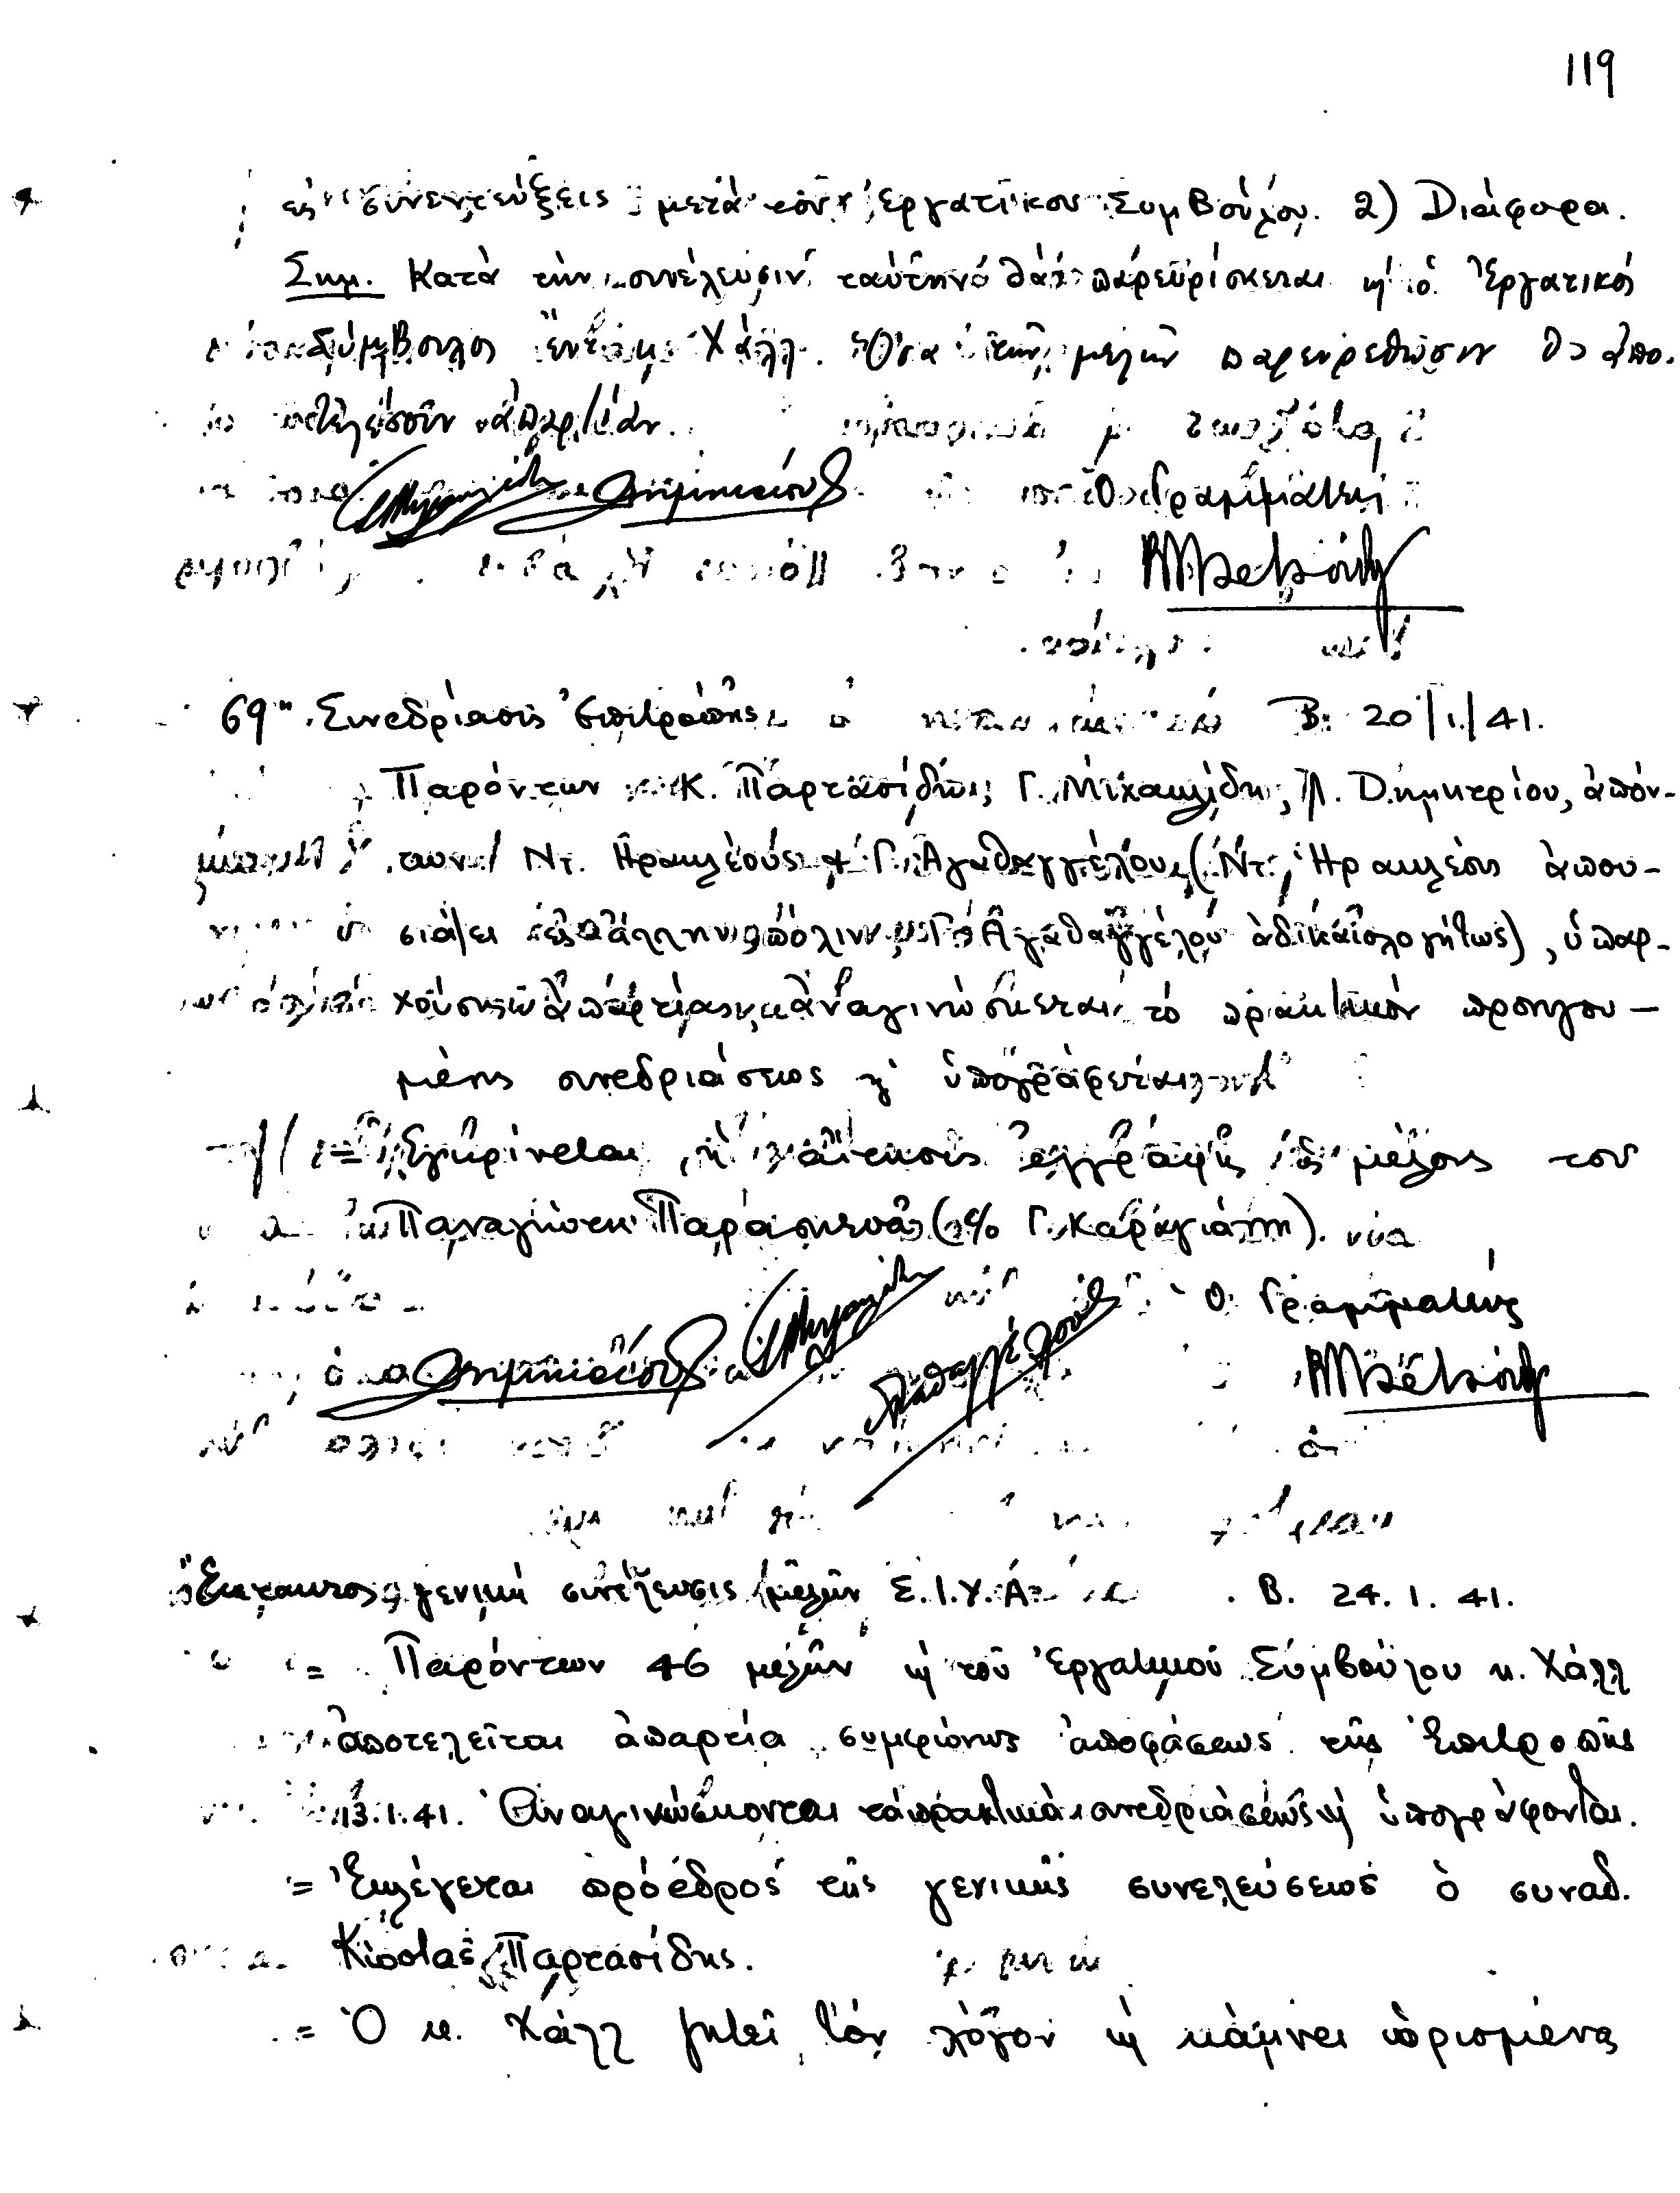 119
εἰς συνεντεύξεις μετὰ τοῦ Ἐργατικοῦ Συμβούλου. 2) Διάφορα.
Σημ. Κατὰ τὴν συνέλευσιν ταύτην θὰ παρευρίσκεται κ' ὁ Ἐργατικὸς
Σύμβουλος Χάλλ. Ὅσα μέλη παρευρεθῶσιν θὰ ἀπο-
τελέσουν ἀπαρτίαν.
Ὁ Γραμματεὺς
69η Συνεδρίασις Ἐπιτροπῆς Β. 20/1/41.
Παρόντων κ.κ. Κ. Παρτασίδη, Γ. Μιχαηλίδη, Λ. Δημητρίου, ἀπόν-
των Ντ. Ηρακλέους & Γ. Ἀγαθαγγέλου (Ντ. Ἡρακλέους ἀπου-
σιάζει εἰς ἄλλην πόλιν κ' Γ. Ἀγαθαγγέλου ἀδικαιολογήτως), ὑπαρ-
χούσης ἀπαρτίας, ἀναγινώσκεται τὸ πρακτικὸν προηγου-
μένης συνεδριάσεως κ' ὑπογράφεται
= Ἐγκρίνεται ἡ αἴτησις ἐγγραφῆς ὡς μέλους τοῦ
Παναγιώτη Παρασκευᾶ (c/o Γ. Καραγιάννη).
Ὁ Γραμματεὺς
Ἔκτακτος γενικὴ συνέλευσις μελῶν Σ.Ι.Υ.Α. Β. 24.1.41.
= Παρόντων 46 μελῶν κ' τοῦ Ἐργατικοῦ Συμβούλου κ. Χάλλ
ἀποτελεῖται ἀπαρτία συμφώνως ἀποφάσεως τῆς Ἐπιτροπῆς
13.1.41. Ἀναγινώσκονται τὰ πρακτικὰ συνεδριάσεως κ' ὑπογράφονται.
= Ἐκλέγεται πρόεδρος τῆς γενικῆς συνελεύσεως ὁ συναδ.
Κώστας Παρτασίδης.
= Ὁ κ. Χάλλ ζητεῖ τὸν λόγον κ' κάμνει ὡρισμένας